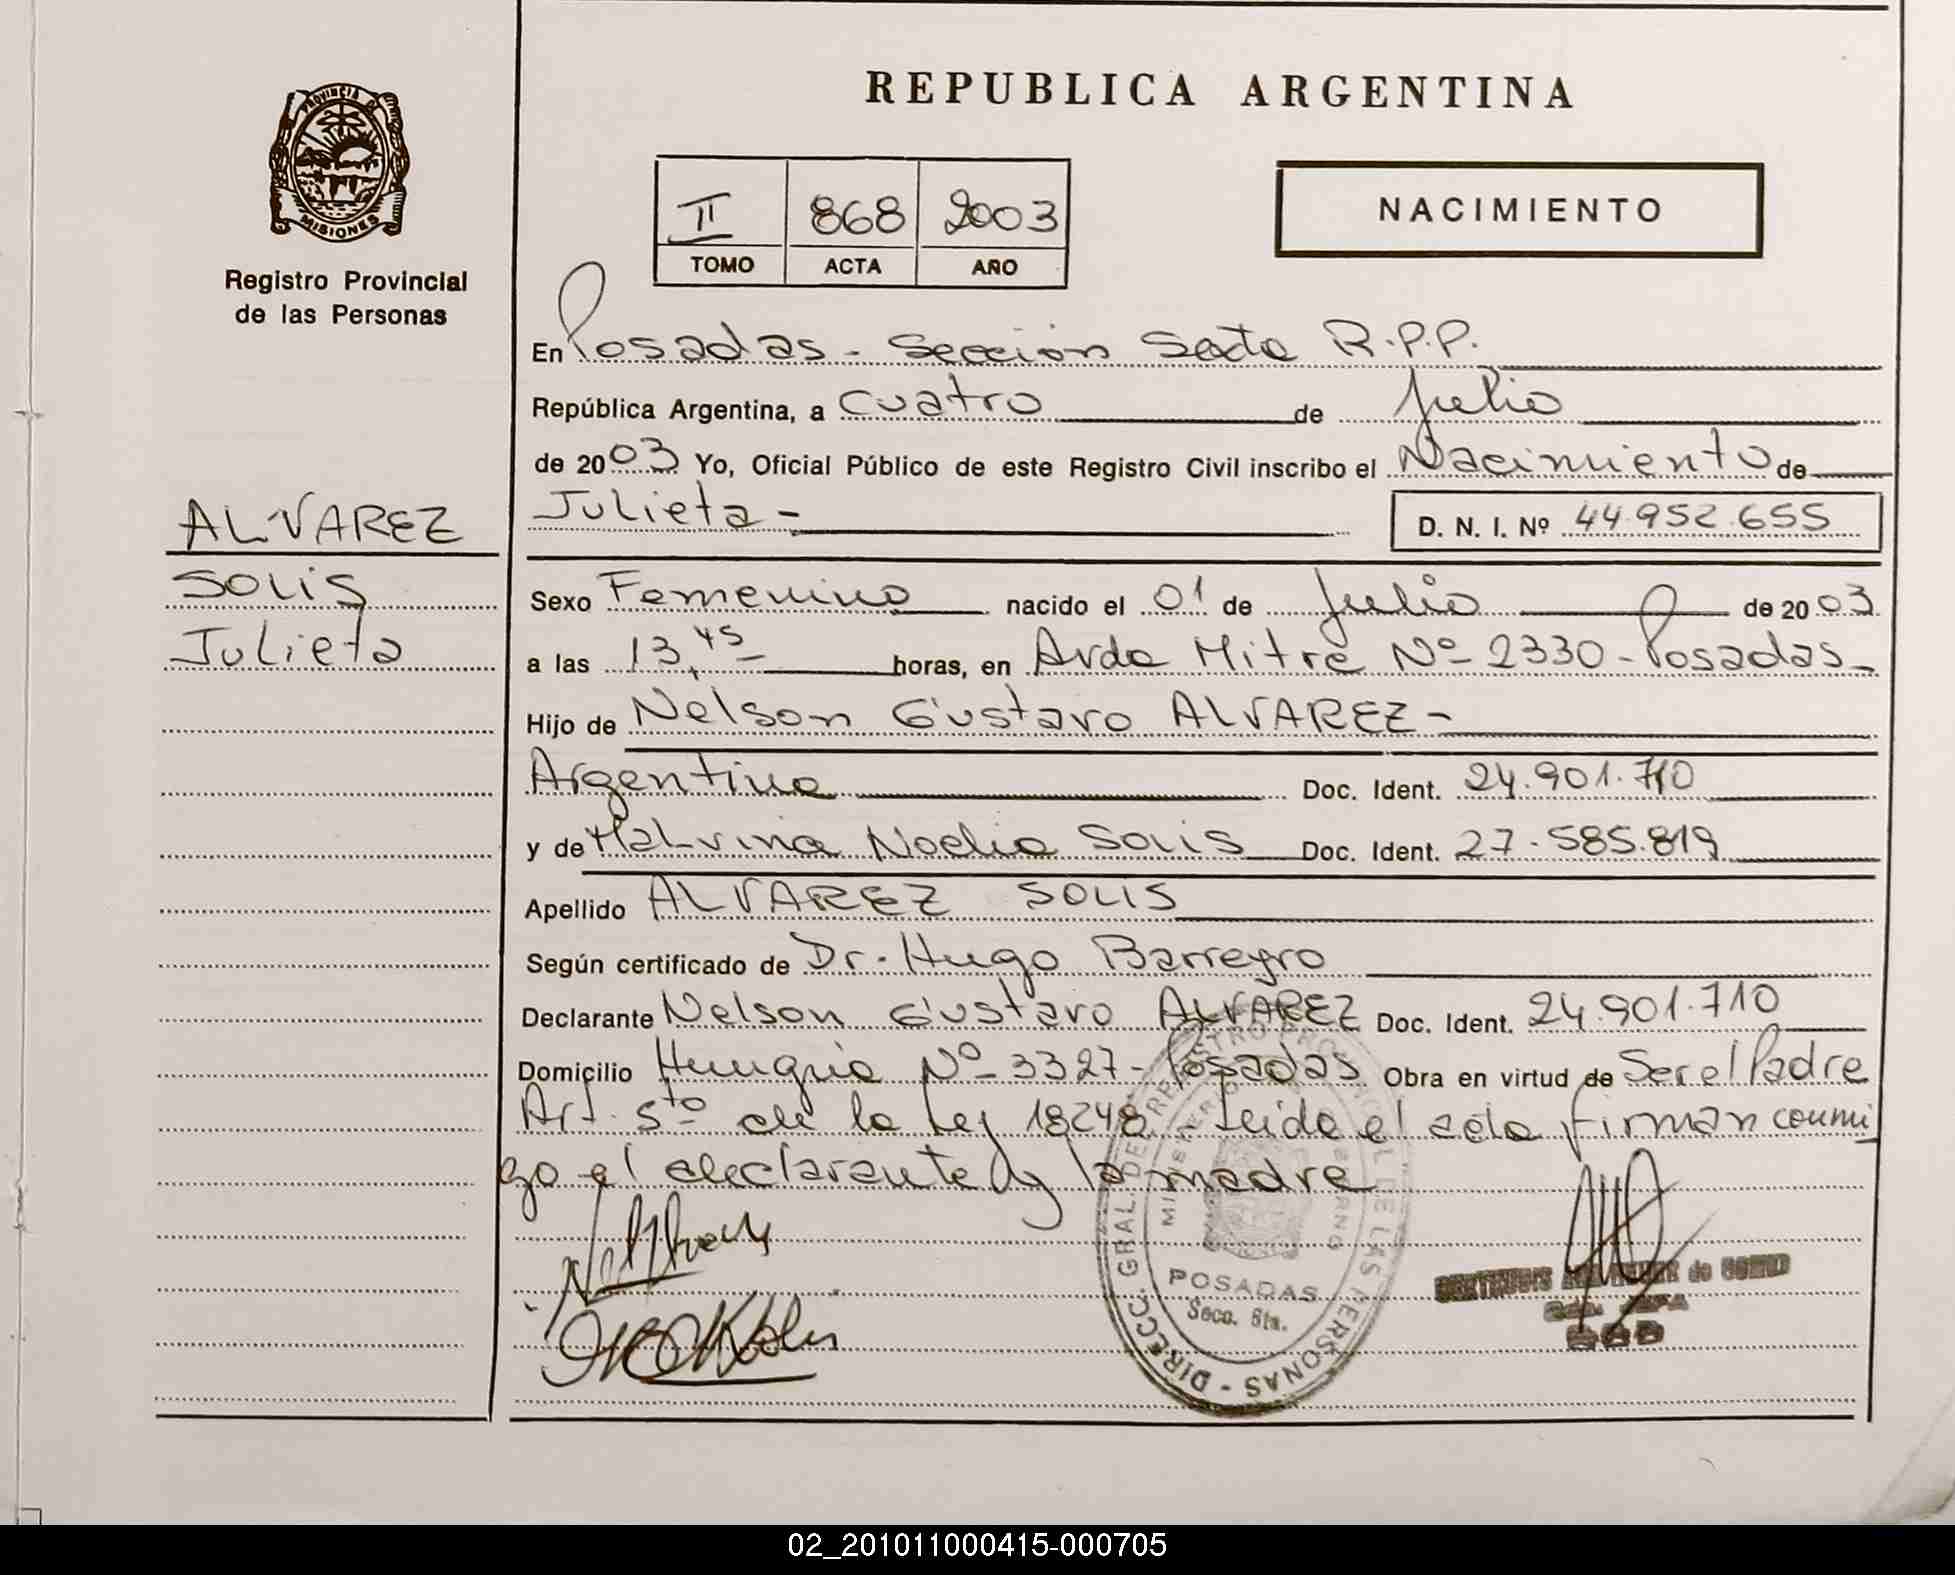 PROVINCIA DE
MISIONES
Registro Provincial
de las Personas
ALVAREZ
SOLIS
Julieta
REPUBLICA ARGENTINA
II 868 2003
TOMO ACTA AÑO
NACIMIENTO
En Posadas - Sección Sexta R.P.P.
República Argentina, a cuatro de Julio
de 2003 Yo, Oficial Público de este Registro Civil inscribo el Nacimiento de
Julieta -
D. N. I. Nº 44.952.655
Sexo Femenino nacido el 01 de Julio de 2003
a las 13,45 horas, en Avda Mitre Nº 2330 - Posadas
Hijo de Nelson Gustavo ALVAREZ -
Argentino Doc. Ident. 24.901.710
y de Malvina Noelia Solis Doc. Ident. 27.585.819
Apellido ALVAREZ SOLIS
Según certificado de Dr. Hugo Barreyro
Declarante Nelson Gustavo ALVAREZ Doc. Ident. 24.901.710
Domicilio Hungria Nº 3327 - Posadas Obra en virtud de Ser el Padre
Art. 5to de la Ley 18248 - Leida el acta firman conmi
go el declarante y la madre
DIRECC. GRAL. DE REGISTRO PROVINCIAL DE LAS PERSONAS -
POSADAS
Secc. 6ta.
02_201011000415-000705